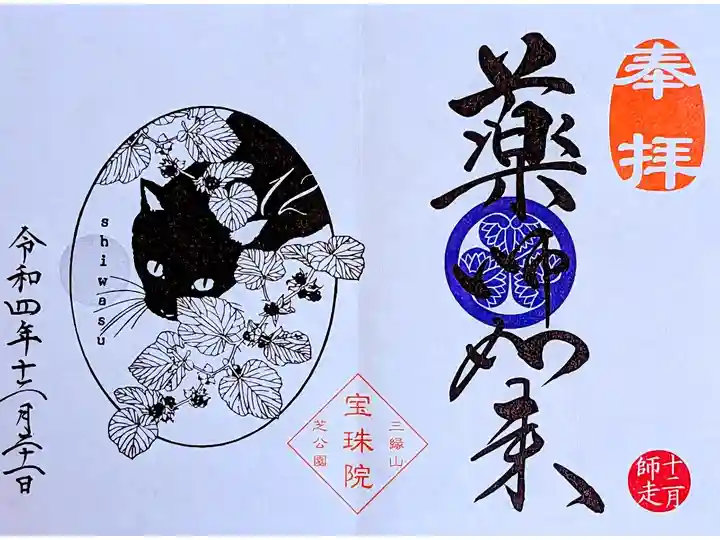 奉拝
薬師如来
十二月
師走
三縁山
宝珠院
芝公園
12
shiwasu
令和四年十二月